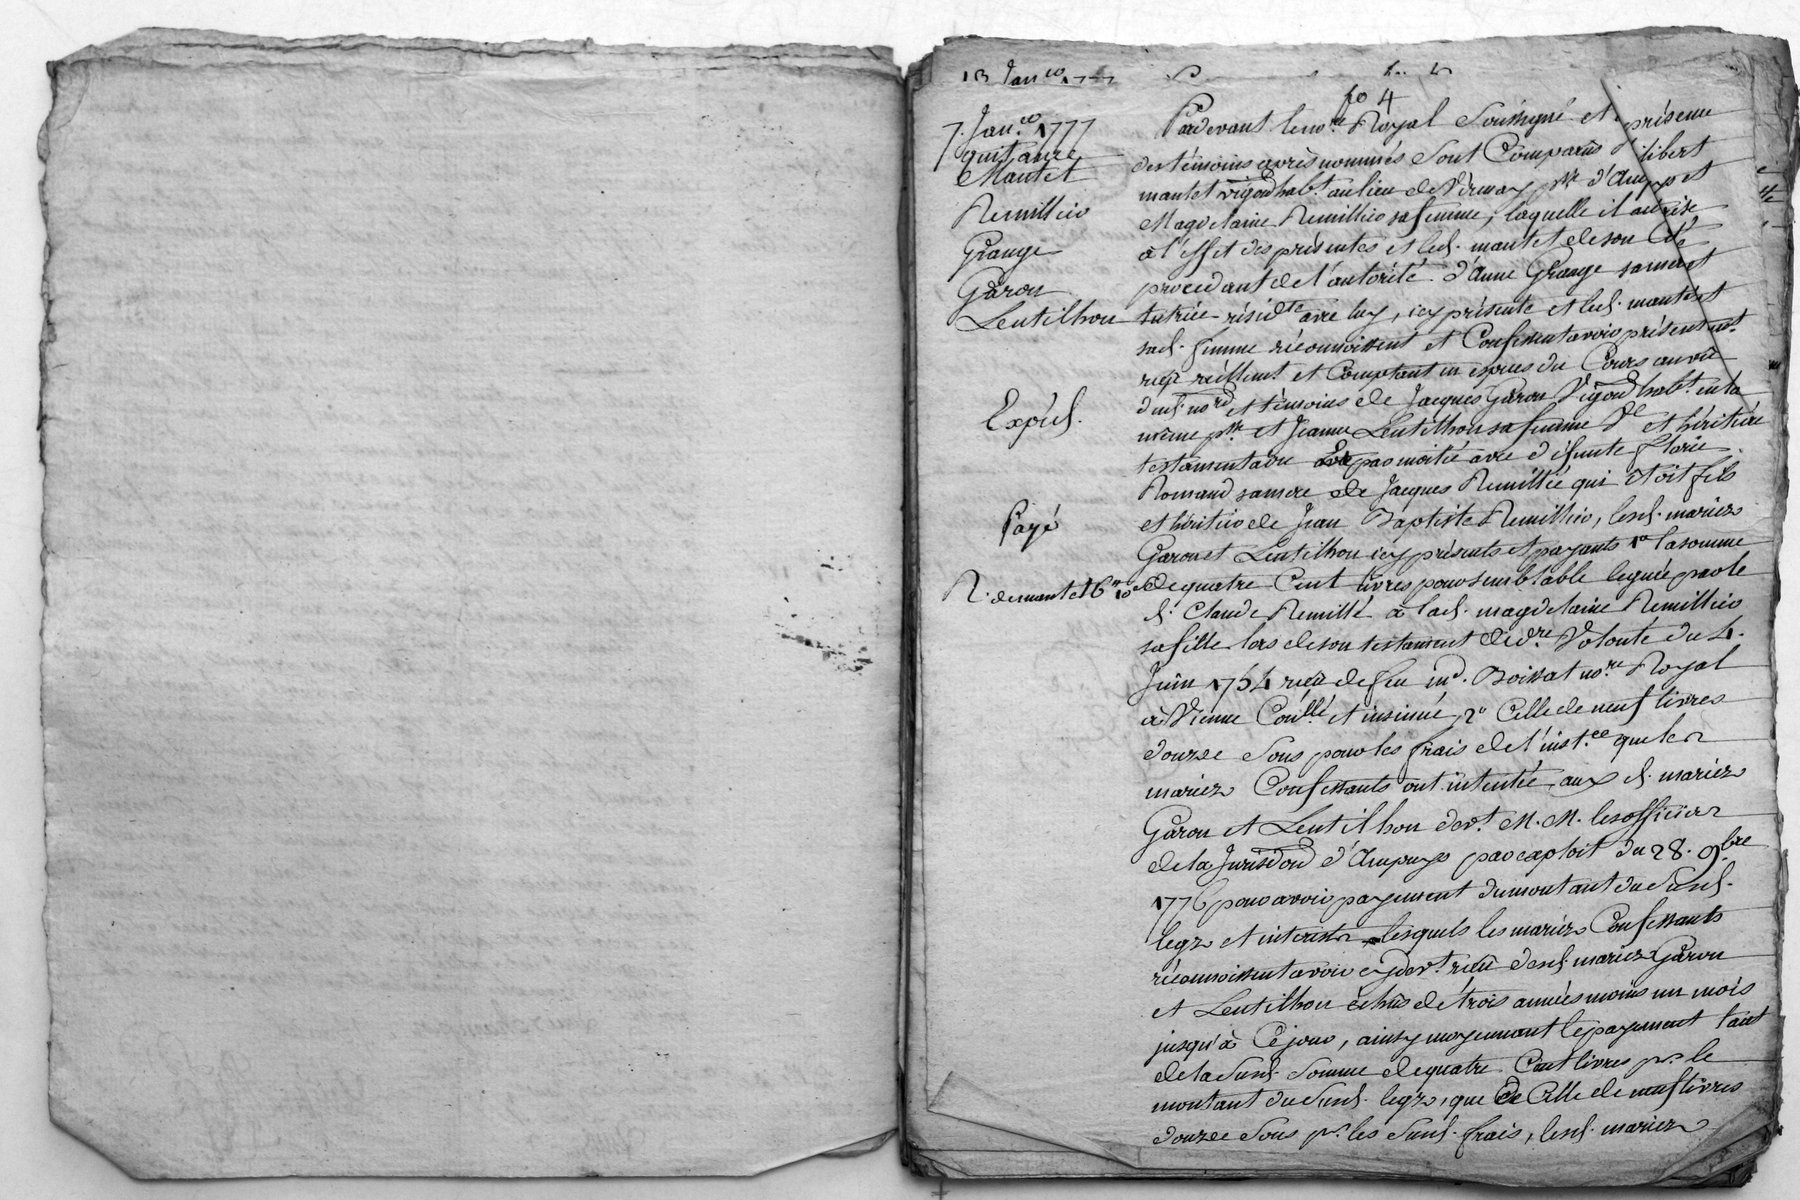 13 Janro 1777
fo 4
7. Janro 1777
quittance
Mantet
Remillieo
Grange
Garon
Lentilhon
Expéd.
Payé
R. de mantet 6
Pardevant le nore. Royal Soussigné et présence
des témoins après nommés Sont Comparus libert
mantet vigon habt. au lieu de Vérenay psse d'Ampuy et
Magdelaine Remillieo sa femme, laquelle il autorise
à l'effet des présentes et led. mantet de son Cté
procedant de l'autorité d'Anne Grange sa mere et
tutrice résidte avec luy, icy présente et led. mantet et
sad. femme réconnoissent et Confessent avoir présentemt.
reçu réellemt. et Comptant en espèces du Cours au vû
dud. nore et témoins de Jacques Garon Vigon habt. en la
même psse et Jeanne Lentilhon sa femme Dlle et héritière
testamentaire par moitié avec défunte Florie
Romand sa mere de Jacques Remillié qui étoit fils
et héritier de Jean Baptiste Remillieo, lesd. mariez
Garon et Lentilhon icy présents et payants 1o la somme
de quatre Cent livres pour semblable leguée par le
d. Claude Remillé à lad. magdelaine Remillieo
sa fille lors de son testament de dre. Volonté du 4.
Juin 1754 reçu de feu me. Boissat nore Royal
à Vienne Conllé et insinué, 2o Celle de neuf livres
douze Sous pour les frais de l'instce que les
mariez Confessants ont intentée aux d. mariez
Garon et Lentilhon devt. M. M. les officiers
de la Jurisdon d'Ampuys par exploit du 28. 9bre
1776 pour avoir payement du montant du Susd.
legz et interests lesquels les mariez Confessants
réconnoissent avoir cy devt. reçû desd. mariez Garon
et Lentilhon échus de trois années moins un mois
jusqu'à Ce jour, ainsy moyennant le payement tant
de la Susd. Somme de quatre Cent livres pr. le
montant du Susd. legz, que de Celle de neuf livres
douze Sous pr. les Susd. frais, lesd. mariez